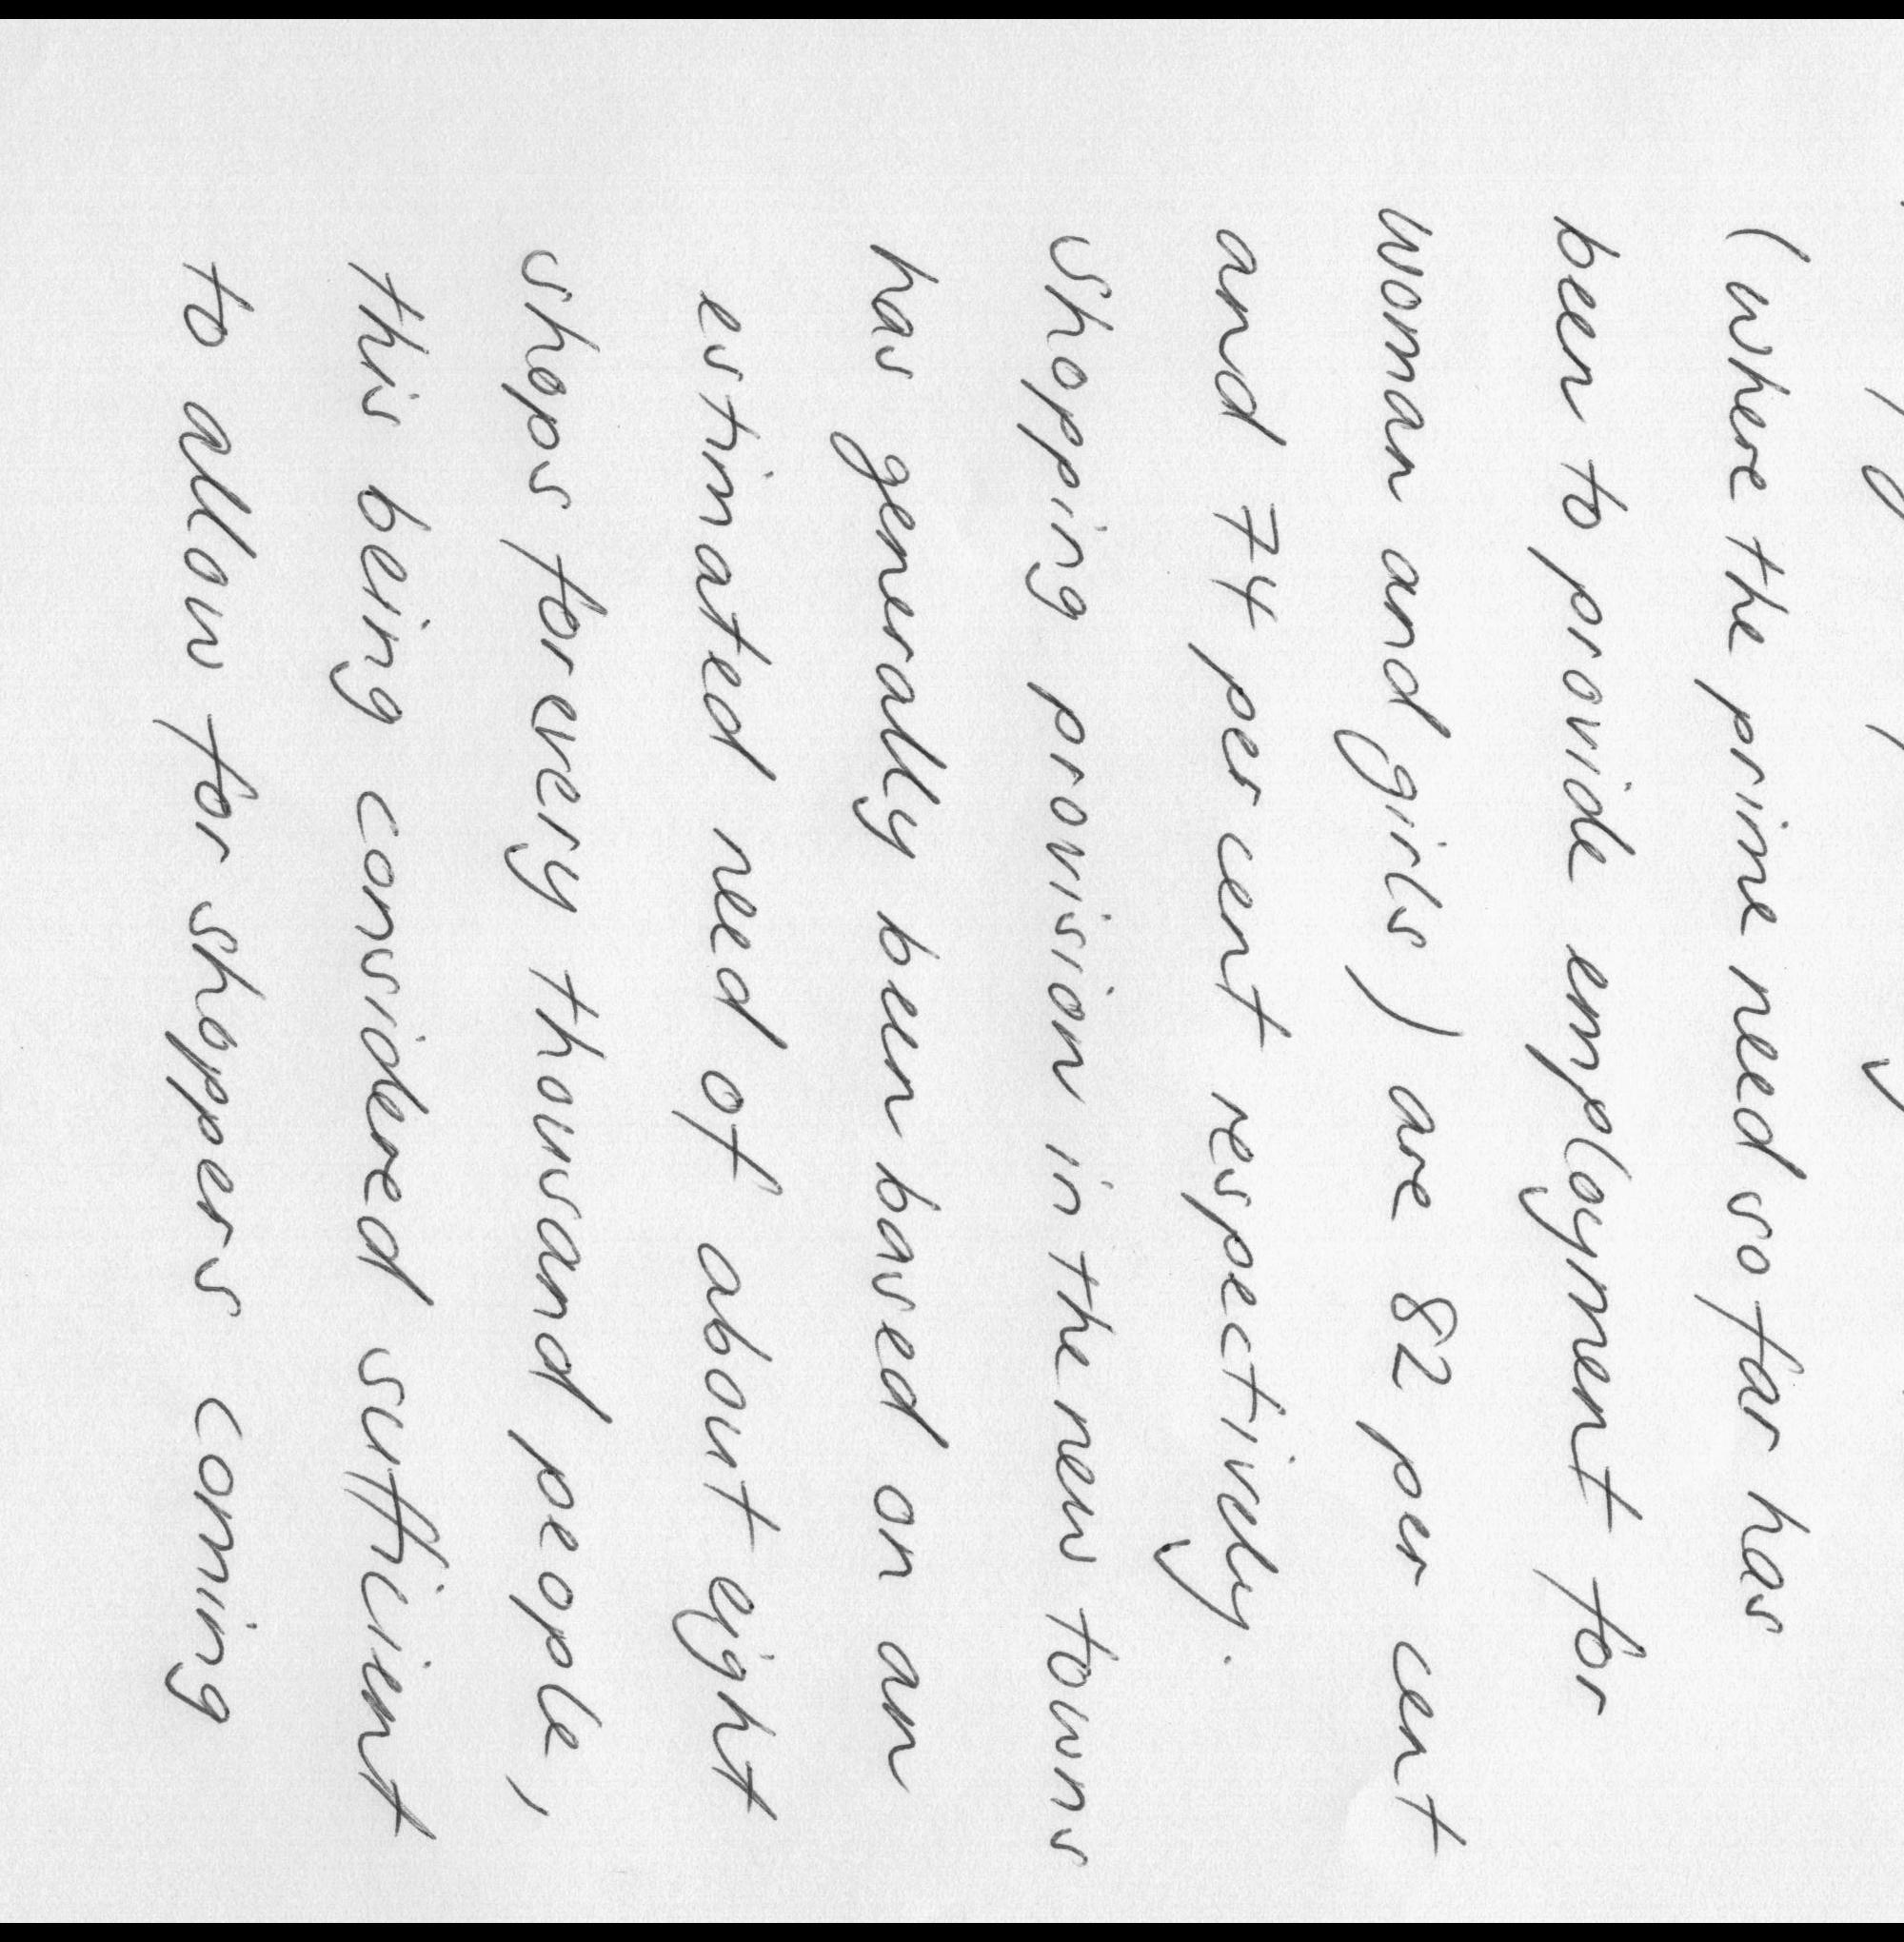 (where the prime need so far has
been to provide employment for
woman and girls) are 82 per cent
and 74 per cent respectively.
Shopping provision in the new towns
has generally been based on an
estimated need of about eight
shops for every thousand people,
this being considered sufficient
to allow for shoppers coming